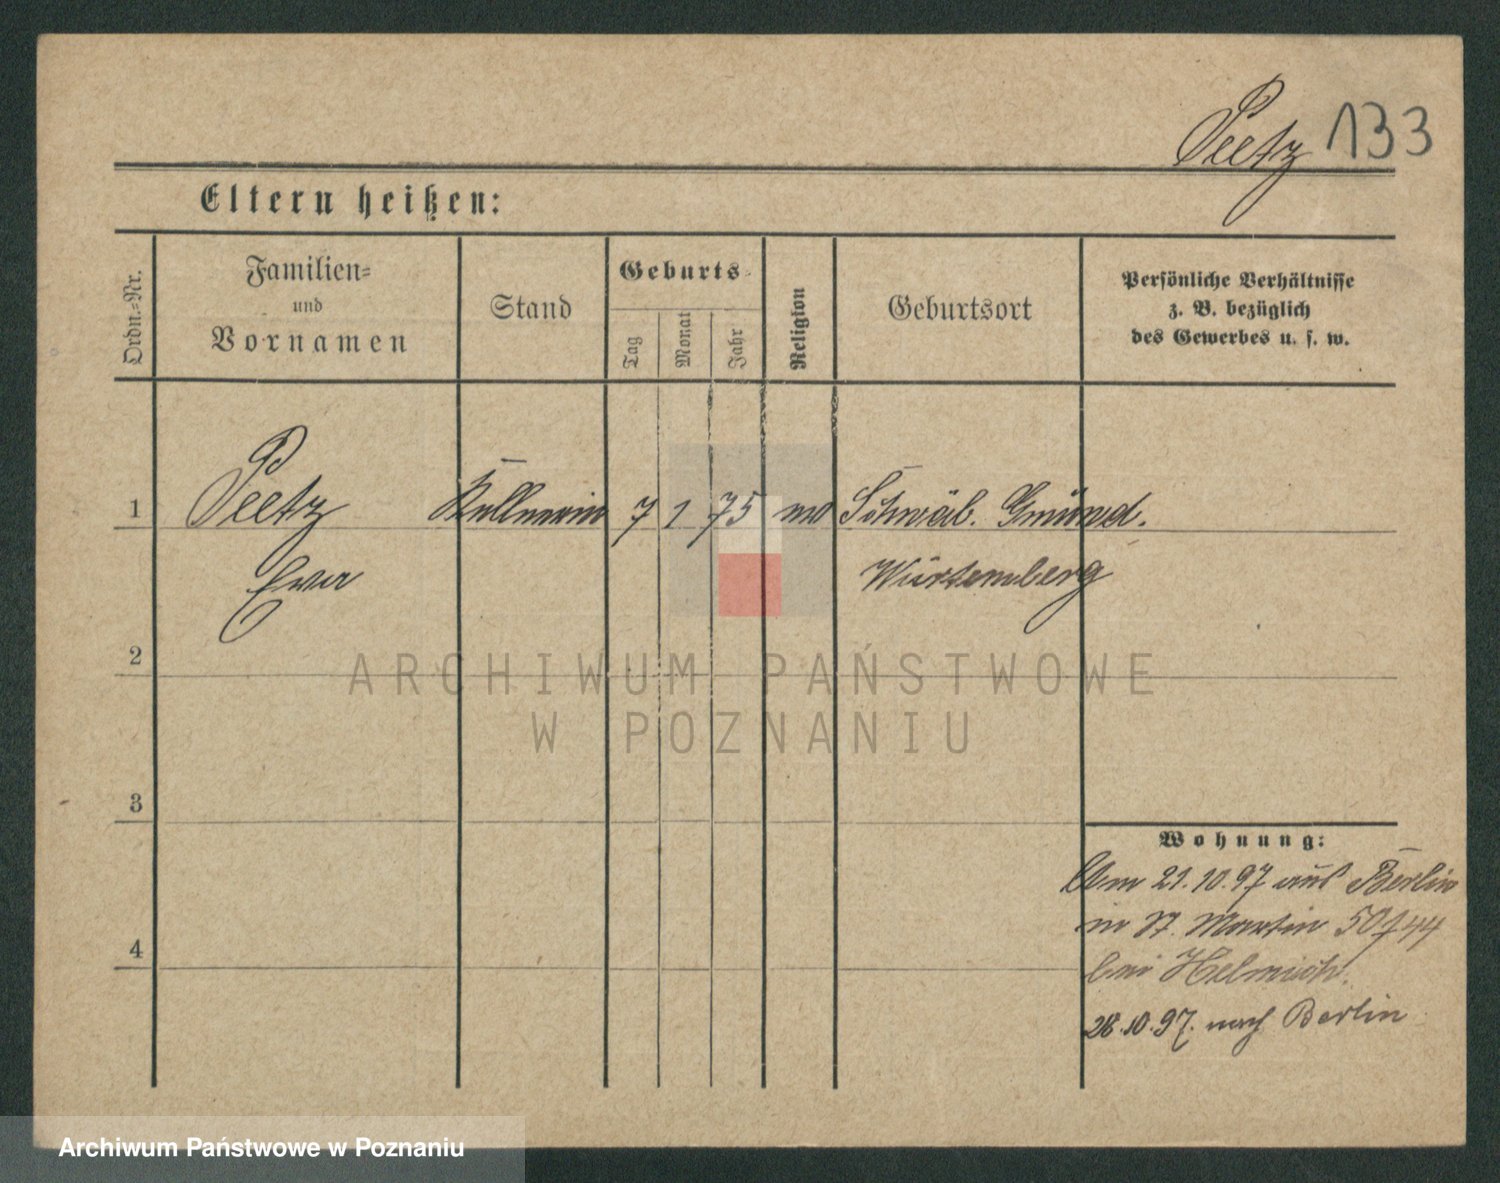 Peetz 133
Eltern heißen:
Ordn.-Nr.
Familien-
und
Vornamen
Stand
Geburts-
Tag
Monat
Jahr
Religion
Geburtsort
Persönliche Verhältnisse
z. B. bezüglich
des Gewerbes u. s. w.
1 Peetz Kellnerin 7 1 75 Schwäb. Gmünd.
Eva Würtemberg
2
3
4
Wohnung:
Am 21.10.97 aus Berlin
in St. Martin 50/44
bei Helmich.
28.10.97. nach Berlin
ARCHIWUM PAŃSTWOWE
W POZNANIU
Archiwum Państwowe w Poznaniu